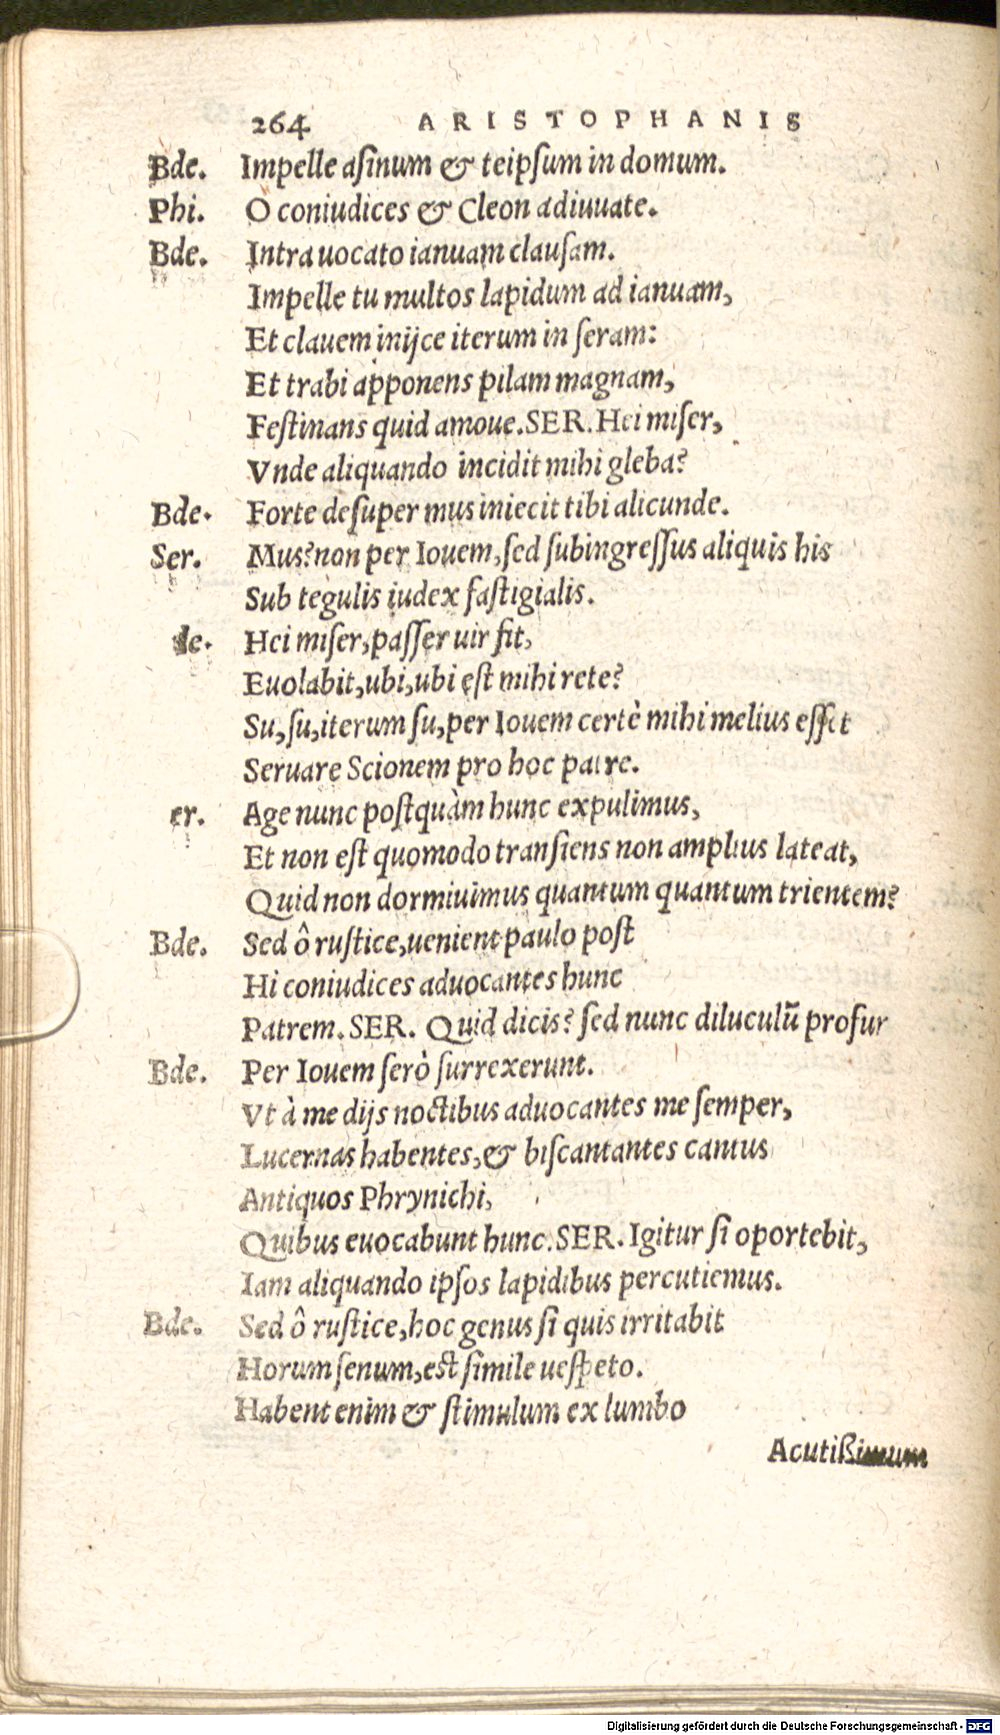 264 ARISTOPHANIS
Bde. Impelle asinum & teipsum in domum.
Phi. O coniudices & Cleon adiuuate.
Bde. Intra uocato ianuam clausam.
Impelle tu multos lapidum ad ianuam,
Et clauem inijce iterum in seram:
Et trabi apponens pilam magnam,
Festinans quid amoue. SER. Hei miser,
Vnde aliquando incidit mihi gleba?
Bde. Forte desuper mus iniecit tibi alicunde.
Ser. Mus? non per Iouem, sed subingressus aliquis his
Sub tegulis iudex fastigialis.
de. Hei miser, passer uir fit,
Euolabit, ubi, ubi est mihi rete?
Su, su, iterum su, per Iouem certè mihi melius esset
Seruare Scionem pro hoc patre.
er. Age nunc postquàm hunc expulimus,
Et non est quomodo transiens non amplius lateat,
Quid non dormiuimus quantum quantum trientem?
Bde. Sed ô rustice, uenient paulo post
Hi coniudices aduocantes hunc
Patrem. SER. Quid dicis? sed nunc diluculũ profur
Bde. Per Iouem serò surrexerunt.
Vt à me dijs noctibus aduocantes me semper,
Lucernas habentes, & biscantantes cantus
Antiquos Phrynichi,
Quibus euocabunt hunc. SER. Igitur si oportebit,
Iam aliquando ipsos lapidibus percutiemus.
Bde. Sed ô rustice, hoc genus si quis irritabit
Horum senum, est simile uespeto.
Habent enim & stimulum ex lumbo
Acutißimum
Digitalisierung gefördert durch die Deutsche Forschungsgemeinschaft - DFG